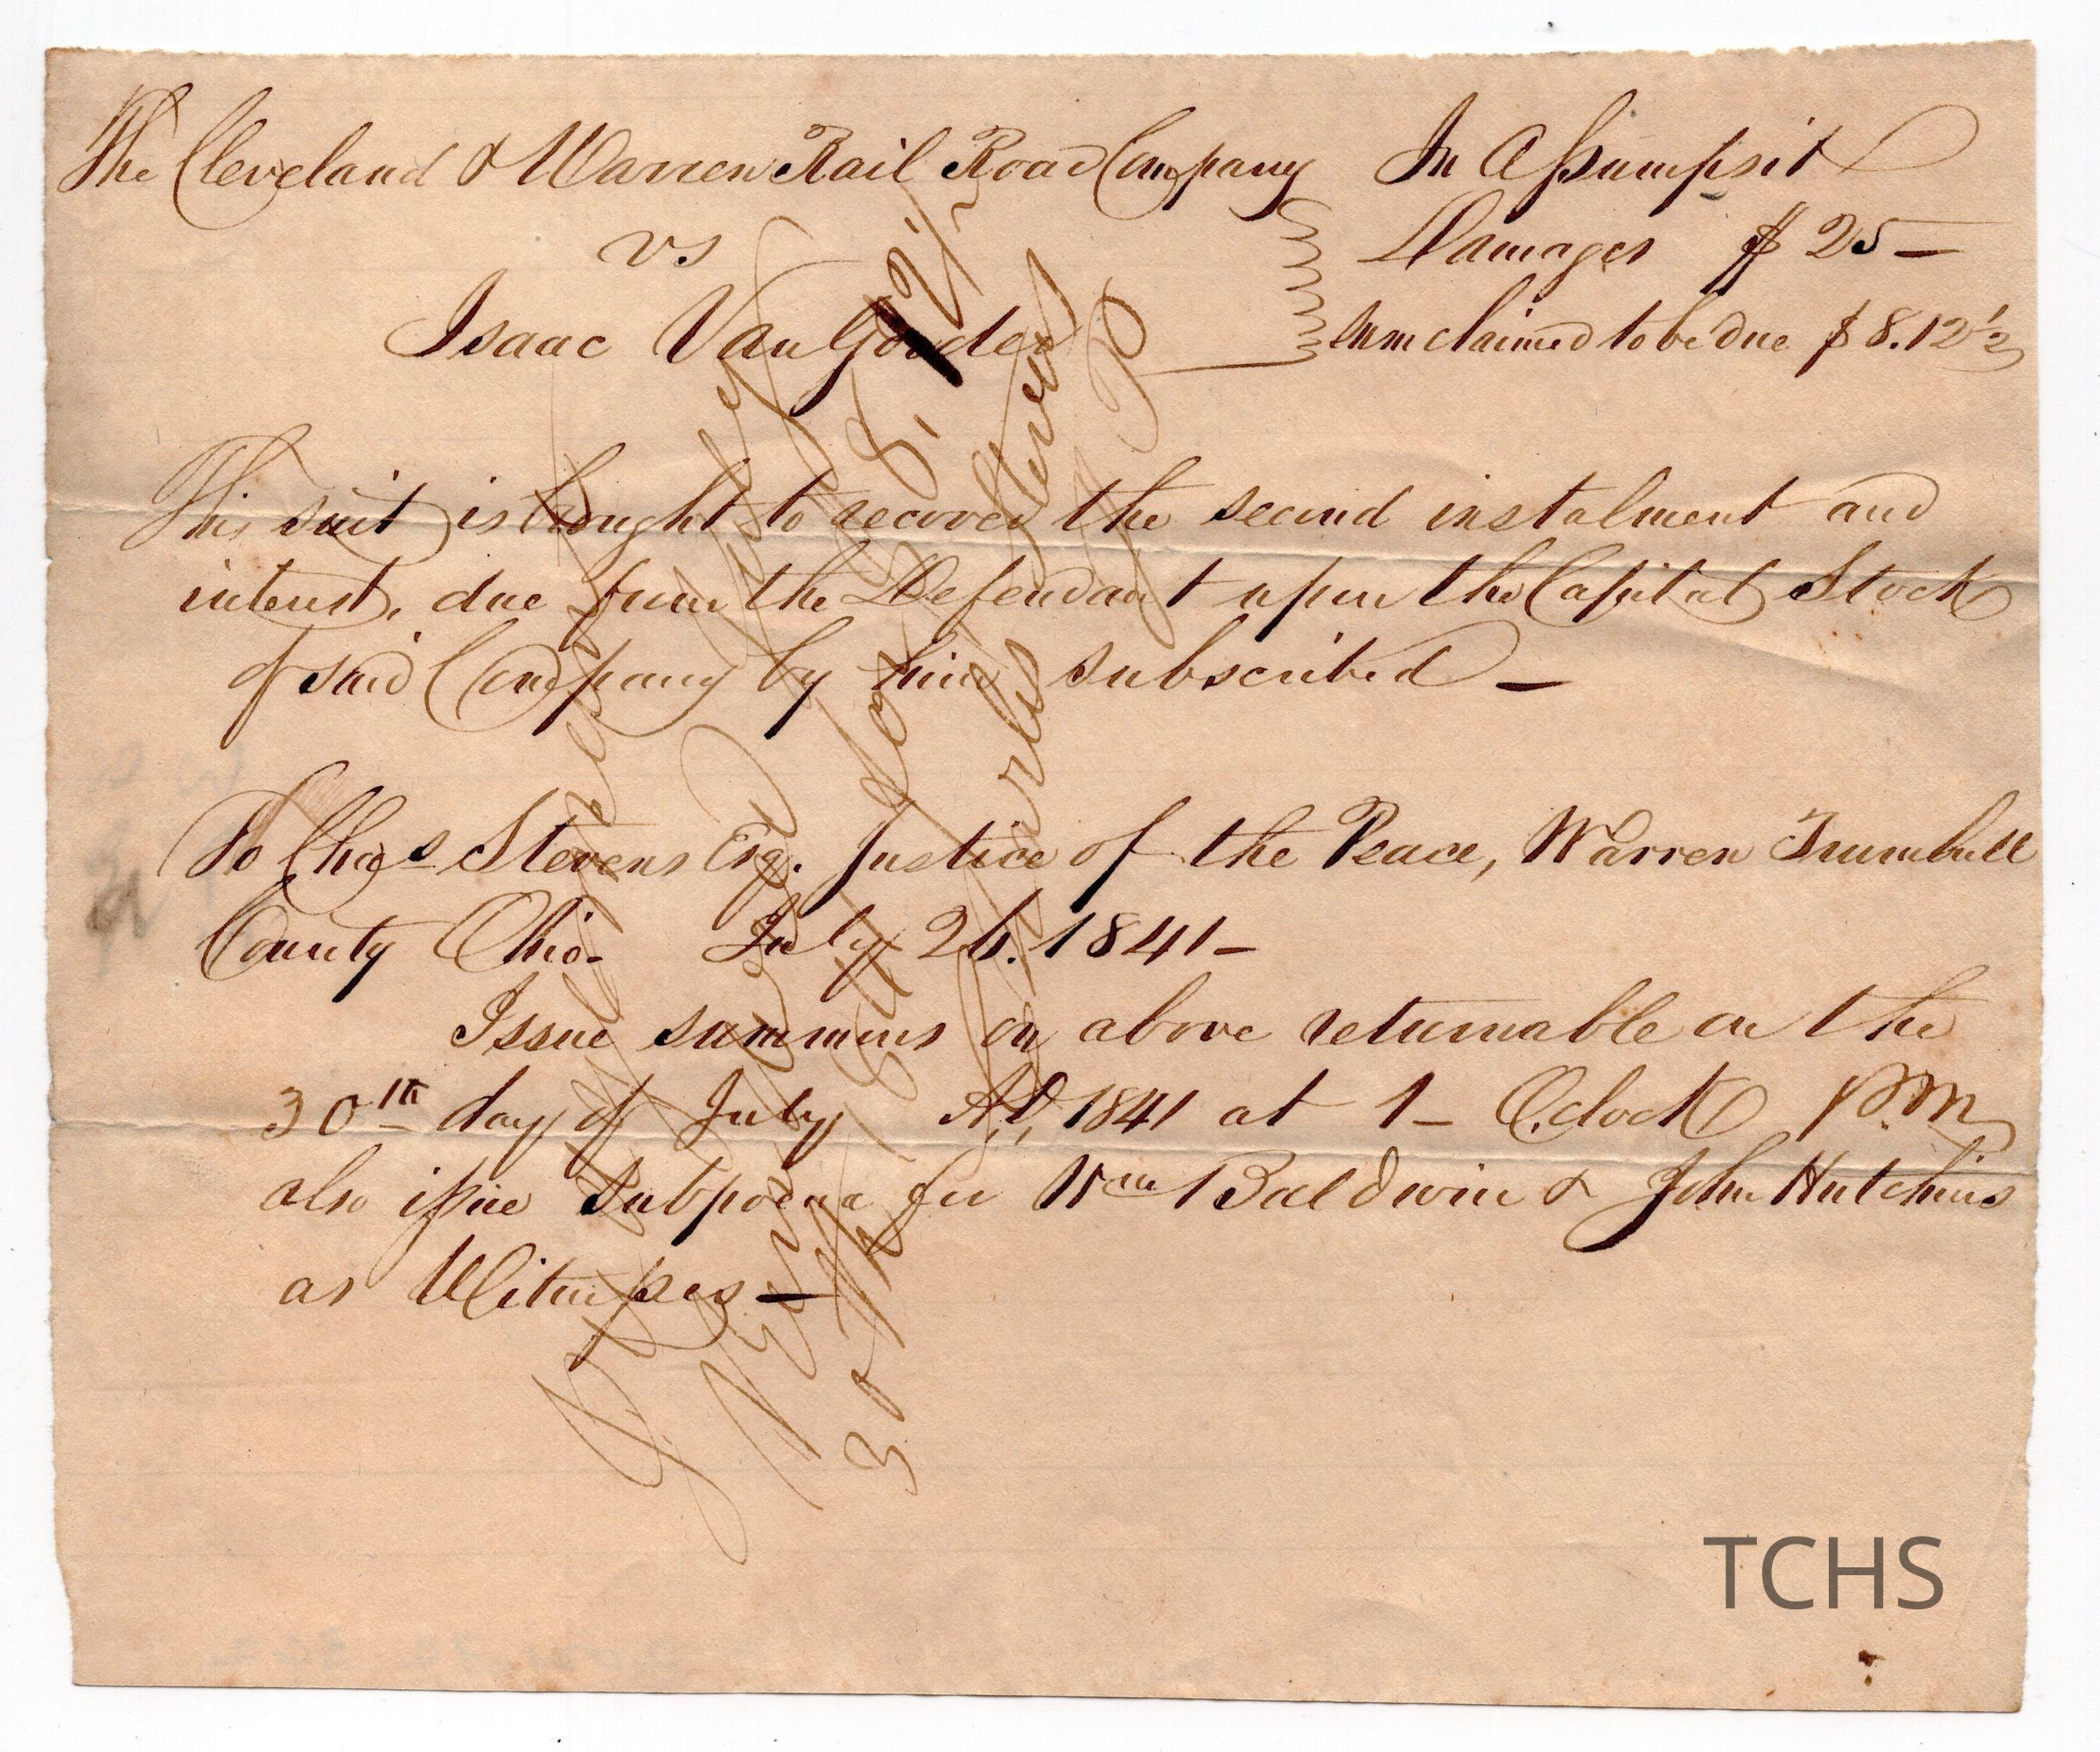 The Cleveland & Warren Rail Road Company In Assumpsit
vs Damages $ 25 –
Isaac Van Gorder Sum claimed to be due $ 8.12 1/2
This suit is brought to recover the second instalment and
interest, due from the Defendant upon the Capital Stock
of said Company by him subscribed –
To Chas Stevens Esq. Justice of the Peace, Warren Trumbull
County Ohio – July 26. 1841 –
Issue summons on above returnable on the
30th day of July A.D. 1841 at 1 – O.clock P.M
also issue Subpoena for Wm Baldwin & John Hutchins
as Witnesses –
Judgment
30th 1841 for $ 8,12 1/2
Charles Stevens J P
TCHS